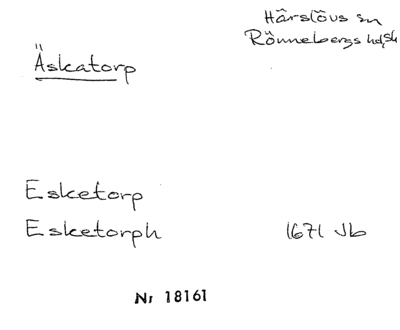 Härslövs sn
Rönnebergs hd, Sk
Äskatorp
Esketorp
Esketorph 1671 Jb
Nr 18161